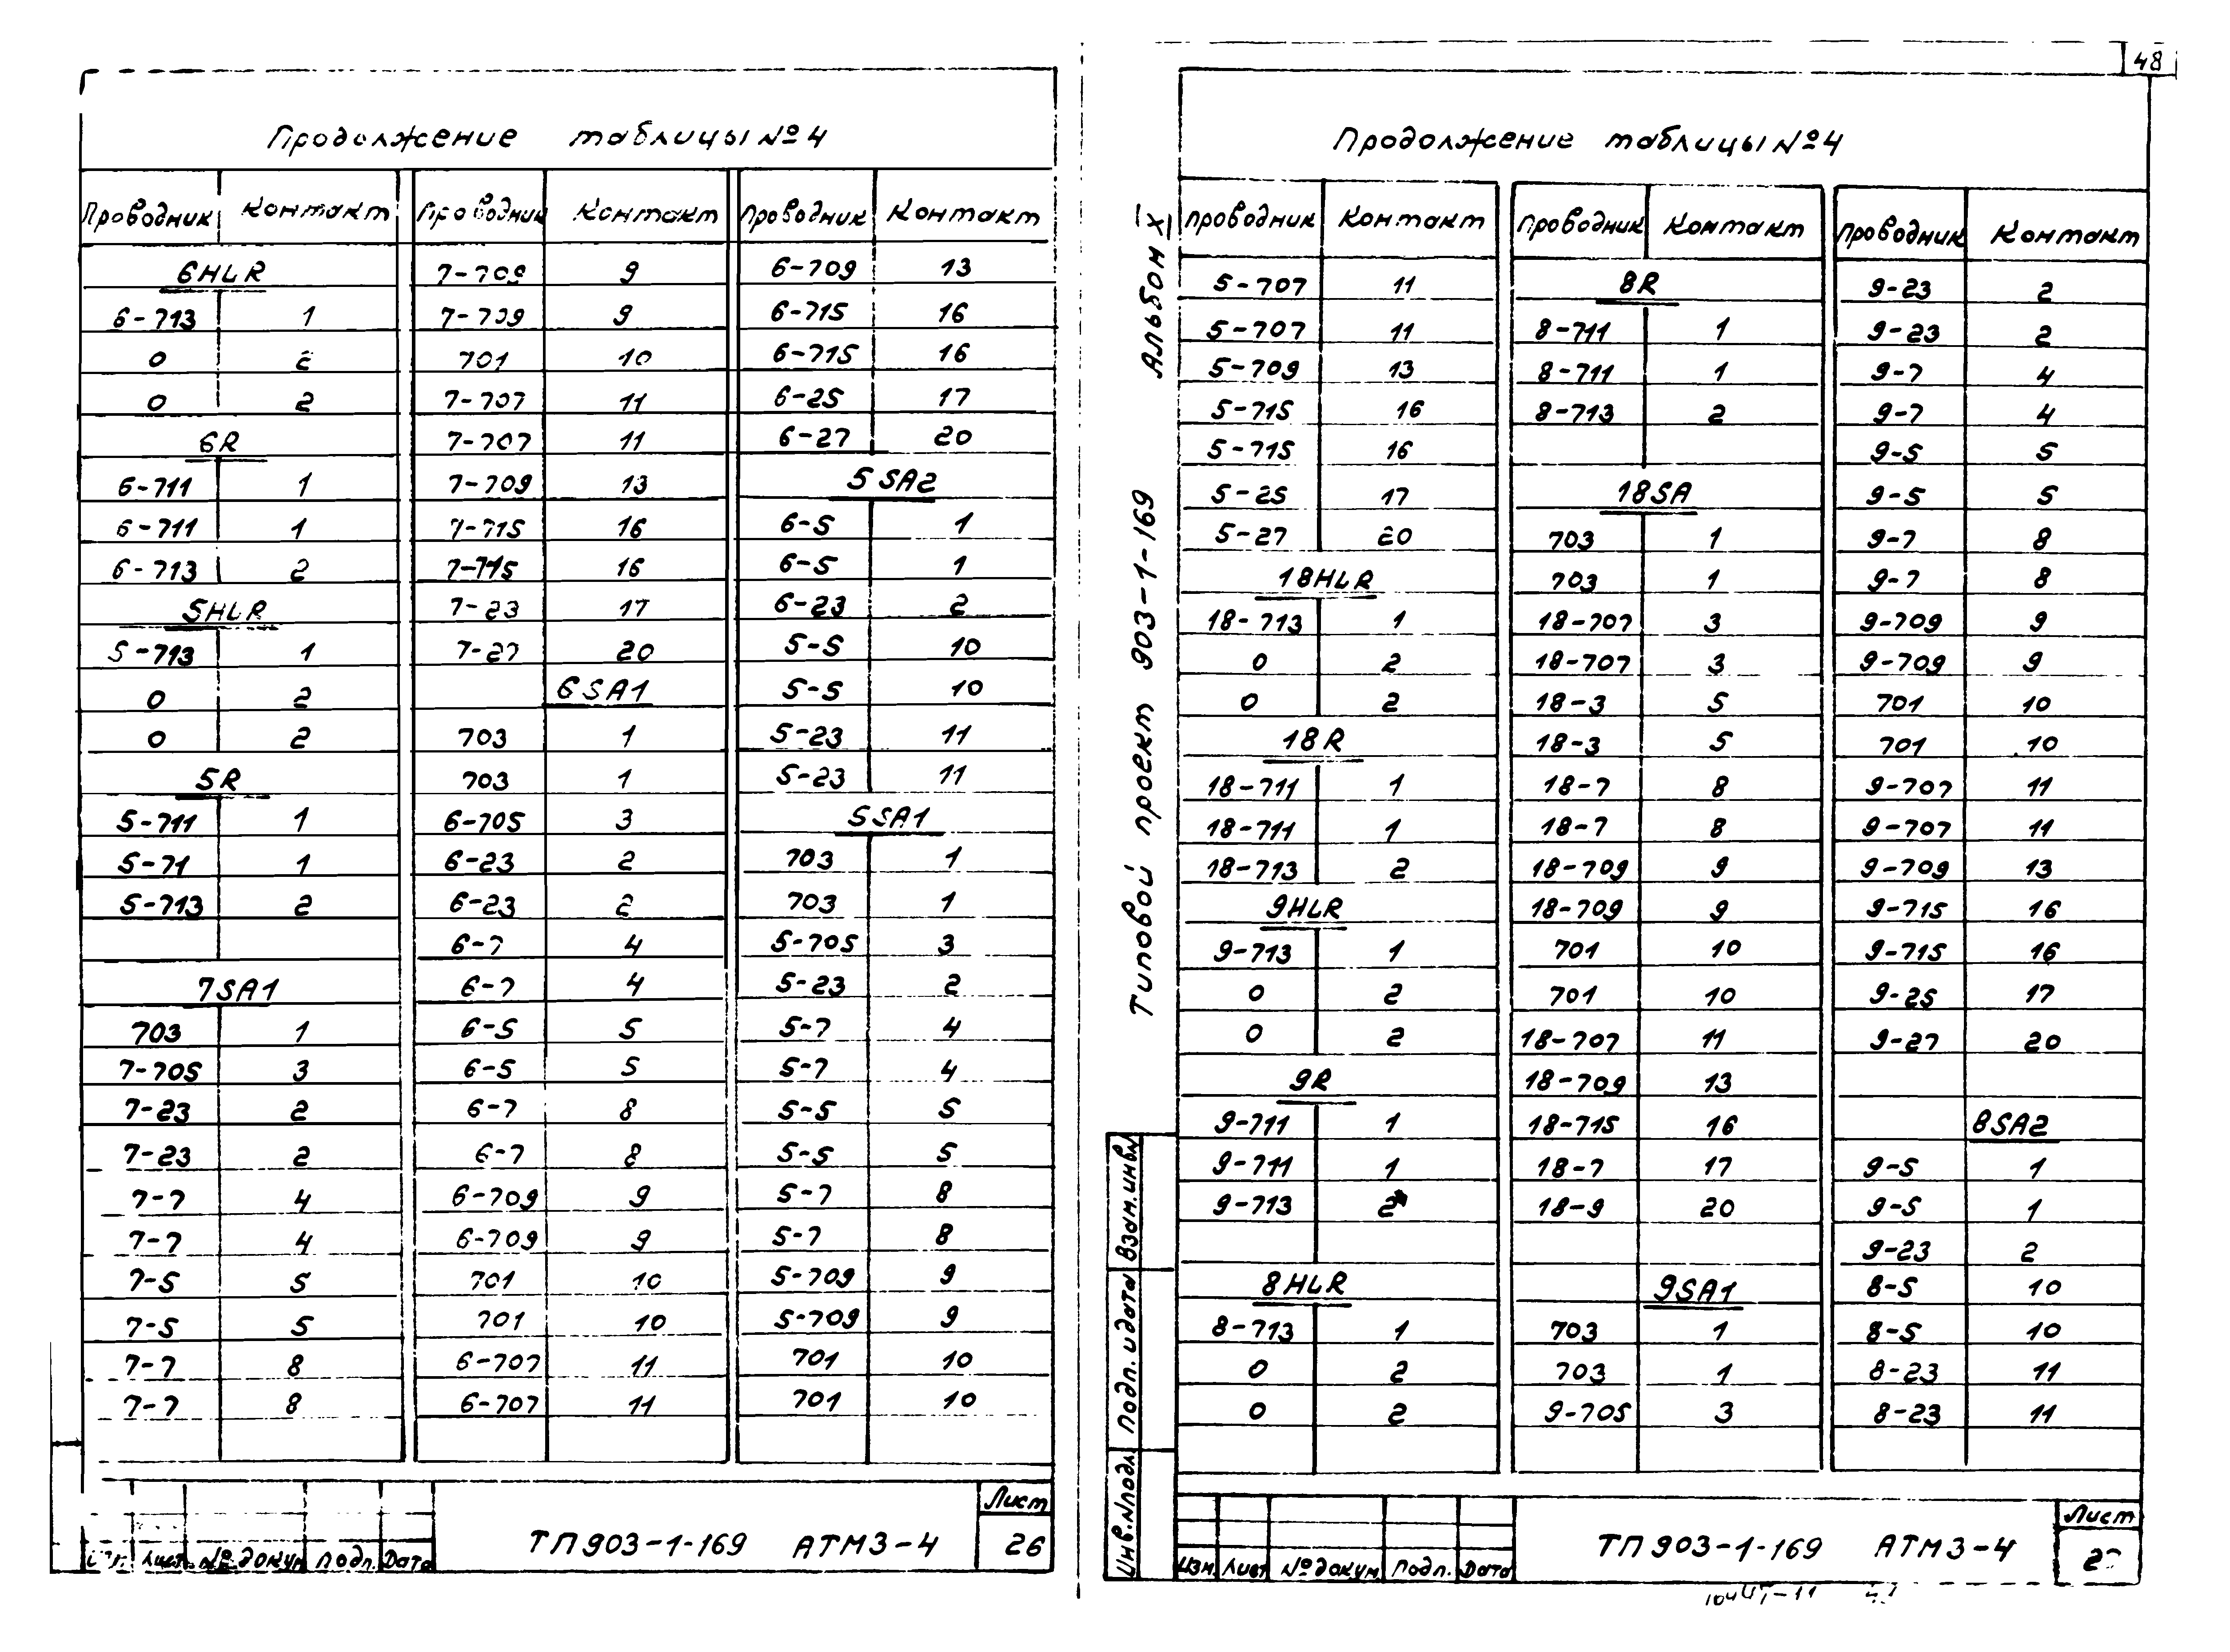 48
Продолжение таблицы №4
Проводник Контакт
6HLR
6-713 1
0 2
0 2
6R
6-711 1
6-711 1
6-713 2
5HLR
5-713 1
0 2
0 2
5R
5-711 1
5-71 1
5-713 2
7SA1
703 1
7-705 3
7-23 2
7-23 2
7-7 4
7-7 4
7-5 5
7-5 5
7-7 8
7-7 8
Проводник Контакт
7-709 9
7-709 9
701 10
7-707 11
7-707 11
7-709 13
7-715 16
7-715 16
7-23 17
7-27 20
6SA1
703 1
703 1
6-705 3
6-23 2
6-23 2
6-7 4
6-7 4
6-5 5
6-5 5
6-7 8
6-7 8
6-709 9
6-709 9
701 10
701 10
6-707 11
6-707 11
Проводник Контакт
6-709 13
6-715 16
6-715 16
6-25 17
6-27 20
5SA2
6-5 1
6-5 1
6-23 2
5-5 10
5-5 10
5-23 11
5-23 11
5SA1
703 1
703 1
5-705 3
5-23 2
5-7 4
5-7 4
5-5 5
5-5 5
5-7 8
5-7 8
5-709 9
5-709 9
701 10
701 10
Лист № докум Подп. Дата
ТП903-1-169 АТМ3-4
Лист
26
Типовой проект 903-1-169 Альбом X
Продолжение таблицы №4
Проводник Контакт
5-707 11
5-707 11
5-709 13
5-715 16
5-715 16
5-25 17
5-27 20
18HLR
18-713 1
0 2
0 2
18R
18-711 1
18-711 1
18-713 2
9HLR
9-713 1
0 2
0 2
9R
9-711 1
9-711 1
9-713 2
8HLR
8-713 1
0 2
0 2
Проводник Контакт
8R
8-711 1
8-711 1
8-713 2
18SA
703 1
703 1
18-707 3
18-707 3
18-3 5
18-3 5
18-7 8
18-7 8
18-709 9
18-709 9
701 10
701 10
18-707 11
18-709 13
18-715 16
18-7 17
18-9 20
9SA1
703 1
703 1
9-705 3
Проводник Контакт
9-23 2
9-23 2
9-7 4
9-7 4
9-5 5
9-5 5
9-7 8
9-7 8
9-709 9
9-709 9
701 10
701 10
9-707 11
9-707 11
9-709 13
9-715 16
9-715 16
9-25 17
9-27 20
8SA2
9-5 1
9-5 1
9-23 2
8-5 10
8-5 10
8-23 11
8-23 11
Инв.№подл. Подп. и дата Взам.инв№
Изм. Лист № докум. Подп. Дата
ТП903-1-169 АТМ3-4
Лист